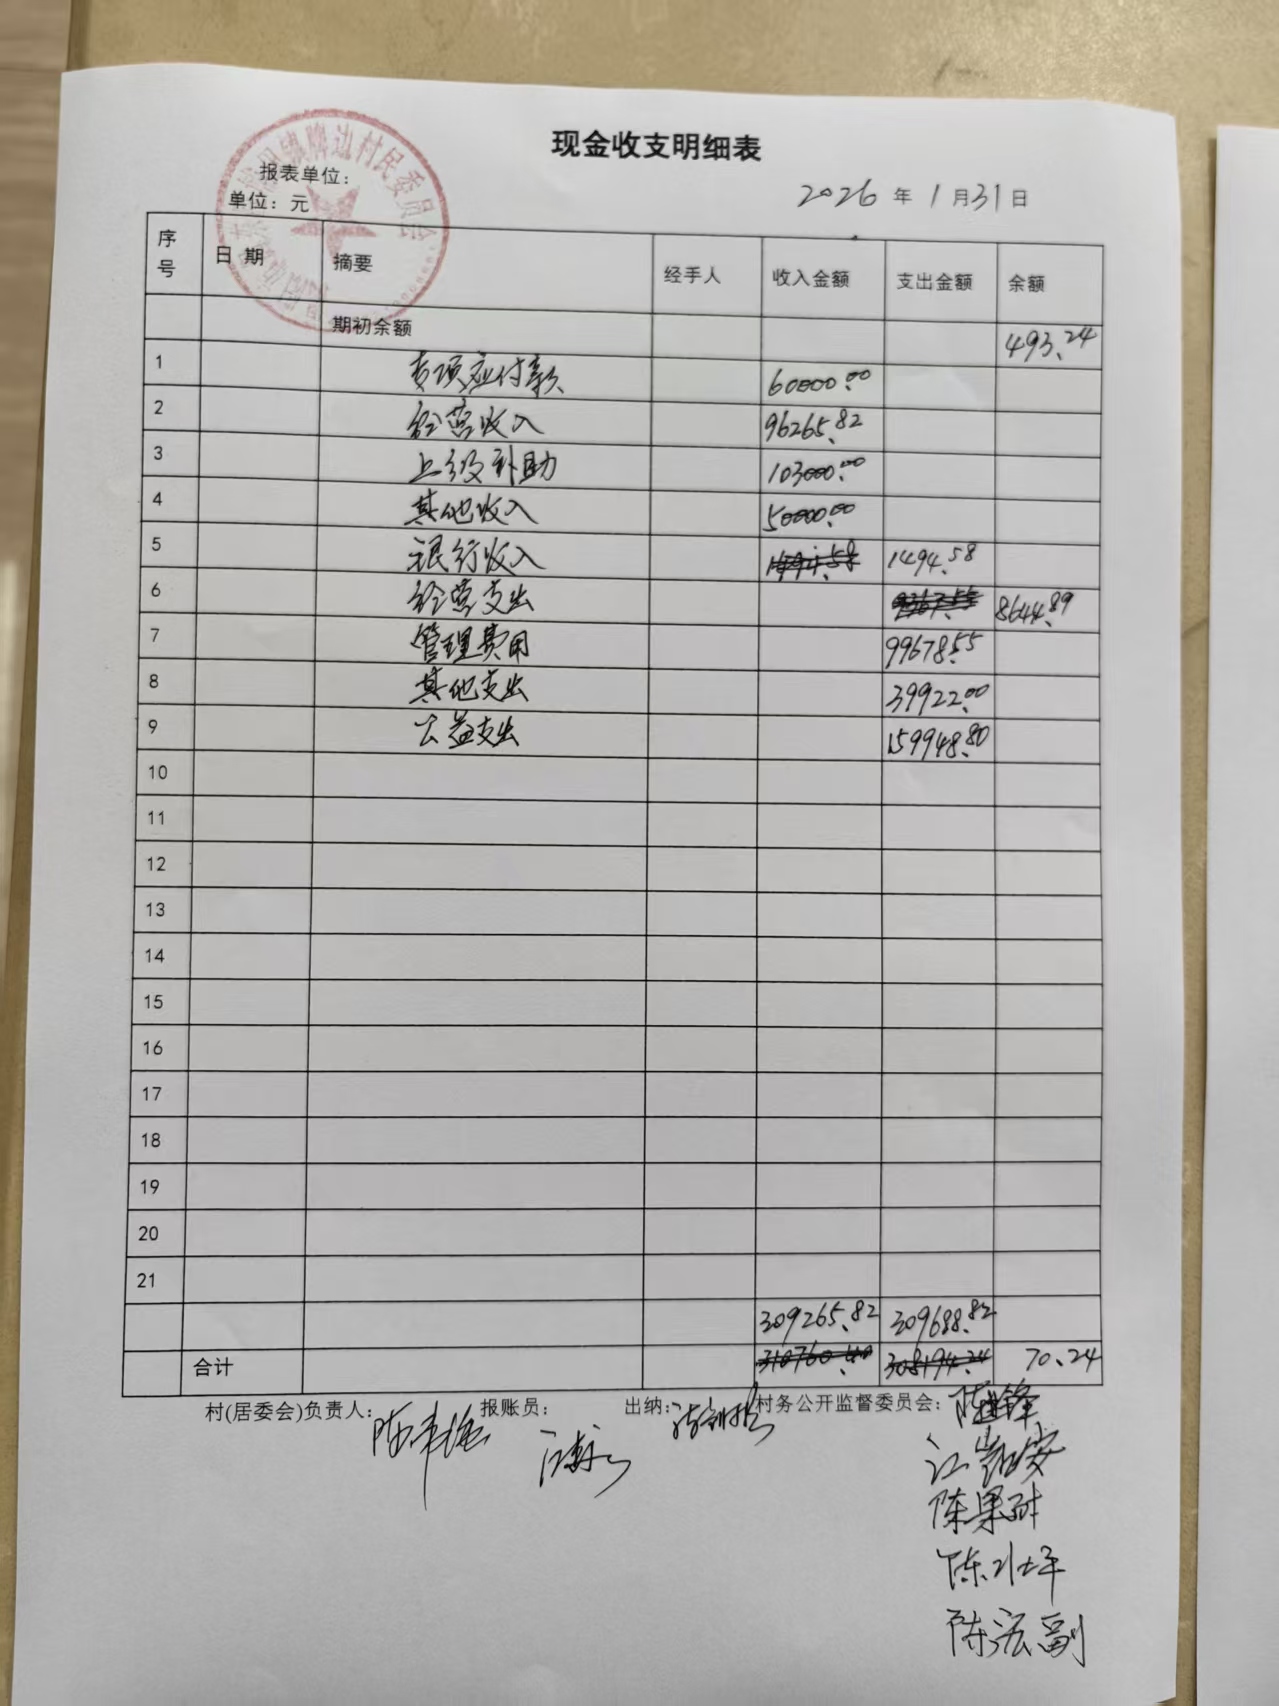 现金收支明细表
报表单位：
2026 年 1 月 31 日
单位：元
序号 日期 摘要 经手人 收入金额 支出金额 余额
期初余额 493.24
1 专项应付款 60000.00
2 经营收入 96265.82
3 上级补助 103000.00
4 其他收入 50000.00
5 银行收入 1494.58 1494.58
6 经营支出 8644.89
7 管理费用 99678.55
8 其他支出 39922.00
9 公益支出 159948.80
10
11
12
13
14
15
16
17
18
19
20
21
309265.82 309688.82
合计 310760.40 308194.24 70.24
村(居委会)负责人： 报账员： 出纳： 村务公开监督委员会：
陈果耐
陈宏副